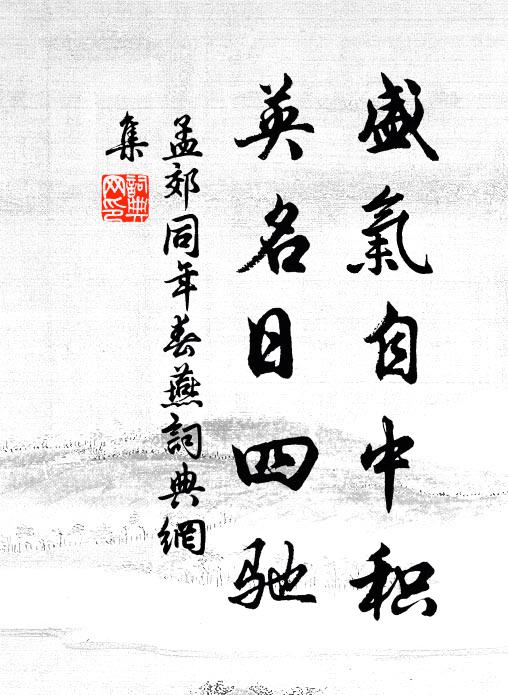 盛氣自中积
英名日四驰
孟郊同年春燕詞典網
集
詞典
网印